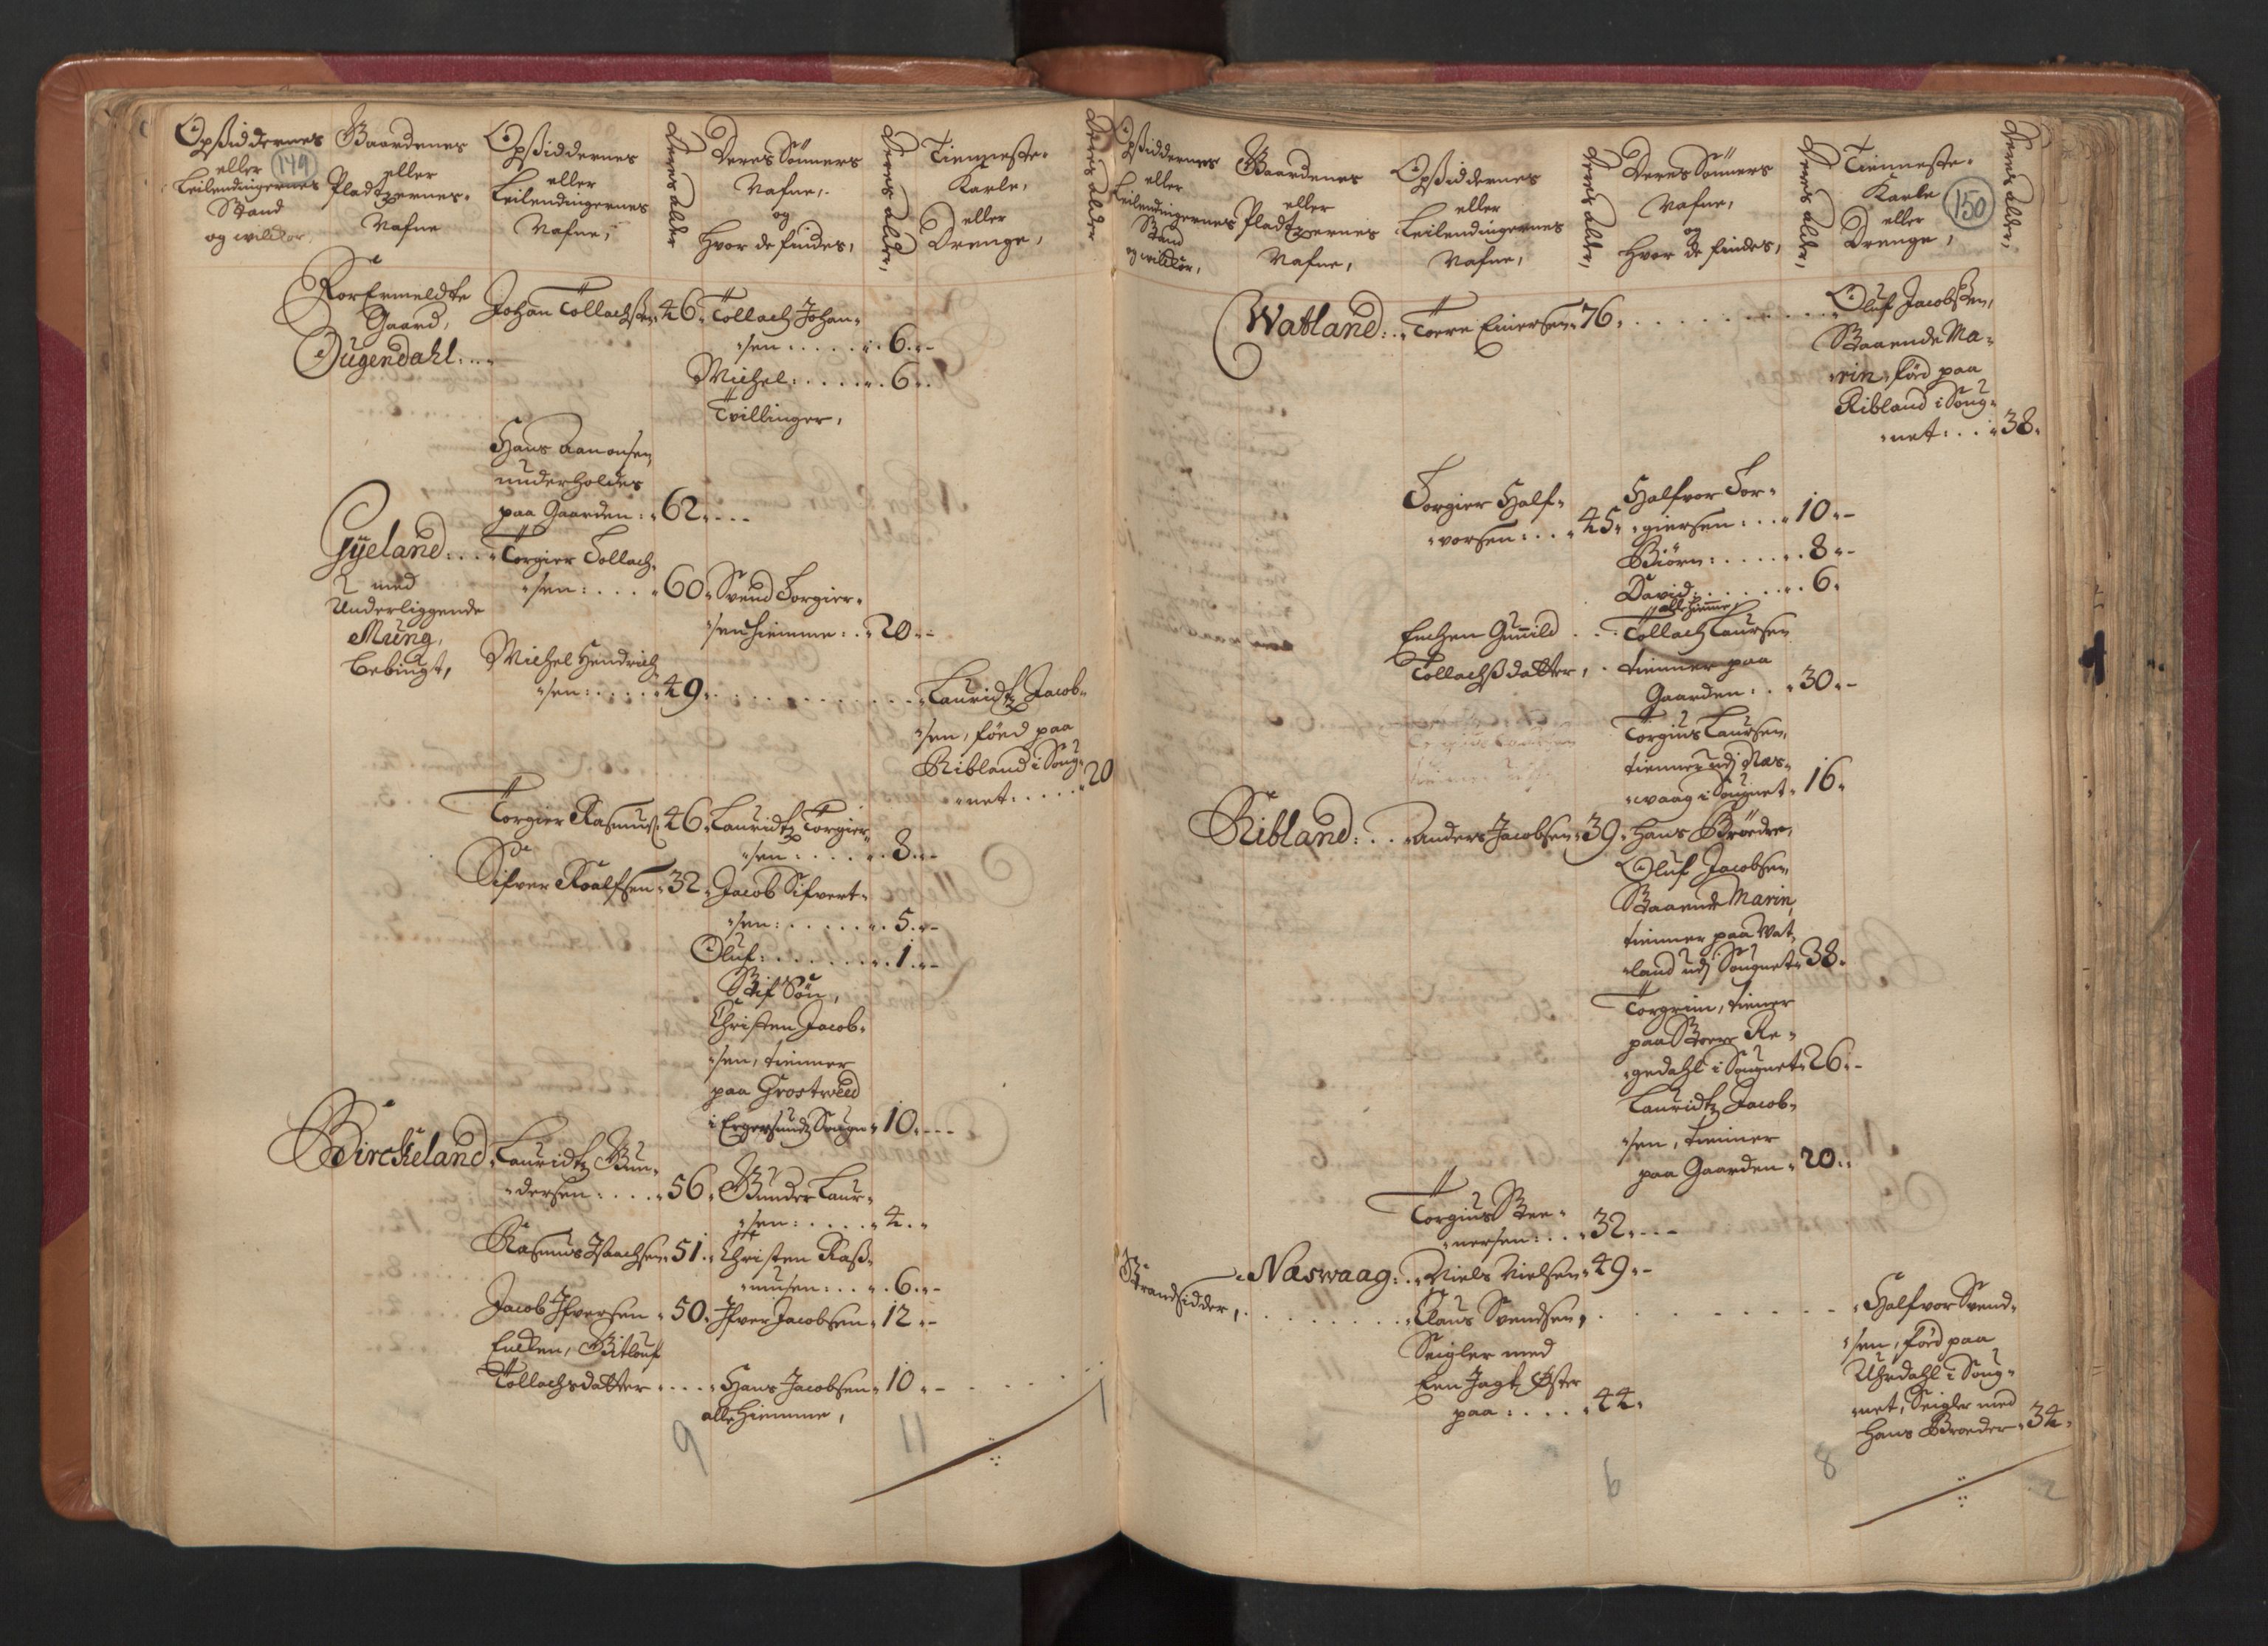 Opsiddernes
eller
Leilendingernes
Stand
og willkor,
149
Gaardenes
eller
Pladtzernes
Nafne
Opsiddernes
eller
Leilendingernes
Nafne,
Deres alder
Deres Sönners
Nafne,
og
hvor de findes,
Deres alder,
Tienneste-
Karle,
eller
Drenge,
Deres alder
ForErmeldte
Gaard,
Ougendahl:...
Johan Tollachsen 46.
Tollach Johan-
sen ..... 6.-
Michel: .... 6.
Tvillinger,
Hans Aanonsen
underholdes
paa Gaarden: 62.---
Gyeland:...
med
Underliggende
Mung,
bebiugt,
Torgier Tollach-
sen: .... 60.
Svend Torgier-
sen hiemme: . 20.-
Michel Hendrich
sen: .... 49.
Lauridtz Jacob-
sen, föed paa
Ribland i Song-
net: .... 20
Torgier Rasmus: 46.
Lauridtz Torgier-
sen: .... 8.-
Sifver Roalfsen 32.
Jacob Sifvert-
sen: ..... 5.-
Oluf: ...... 1.-
Stif Sön,
Christen Jacob-
sen, tienner
paa Grostveed
i Egersundtz Sougn 10.---
Birckeland.
Lauridtz Gun-
dersen: .... 56.
Gunder Laur-
sen: .... 4.-
Rasmus Isaachsen 51.
Christen Rass-
musen: .. 6.-
Jacob Ifversen 50.
Ifver Jacobsen 12.-
Encken, Gitlouf
Tollachsdatter ....
Hans Jacobsen 10.-
alle hiemme,
9
11
1
Opsiddernes
eller
Leilendingernes
Stand
og willkor,
Gaardenes
eller
Pladtzernes
Nafne,
Opsiddernes
eller
Leilendingernes
Nafne,
Deres alder,
Deres Sönners
Nafne,
og
hvor de findes,
Deres alder,
Tienneste-
Karle
eller
Drenge,
150
Deres alder,
Watland:.
Toere Einersen 76.
Oluf Jacobsen,
Staaende Ma-
rin, föed paa
Ribland i Song-
net: .. 38.
Torgier Half-
vorsen: .. 45.
Halfvor Tor-
giersen: .. 10.-
Biörn: .... 8.-
David: .... 6.
alle hiemme,
Enchen Gunnild ...
Tollachsdatter,
Tollach Laursen
tienner paa
Gaarden: . 30.-
Torgius Laursen,
tienner udj Næs-
waag i Sougnet 16.
Ribland: ..
Anders Jacobsen 39.
hans Brödre,
Oluf Jacobsen,
Staaende Marin,
tienner paa Wat-
land udj Sougnet 38.
Torgrim, tiener
paa Store Re-
gedahl i Sougnet 26.-
Lauridtz Jacob-
sen, tienner
paa Gaarden 20.
Torgius Stee-
nersen: .. 32.---
Strandsidder,
Næswaag:.
Niels Nielsen 49.-
Claus Svendsen,
Seigler med
Een Jagt Øster
paa: .... 44.
Halfvor Svend-
sen, föed paa
Uhrdahl i Soug-
net, Seigler med
hans Broeder 34.
6
8
2